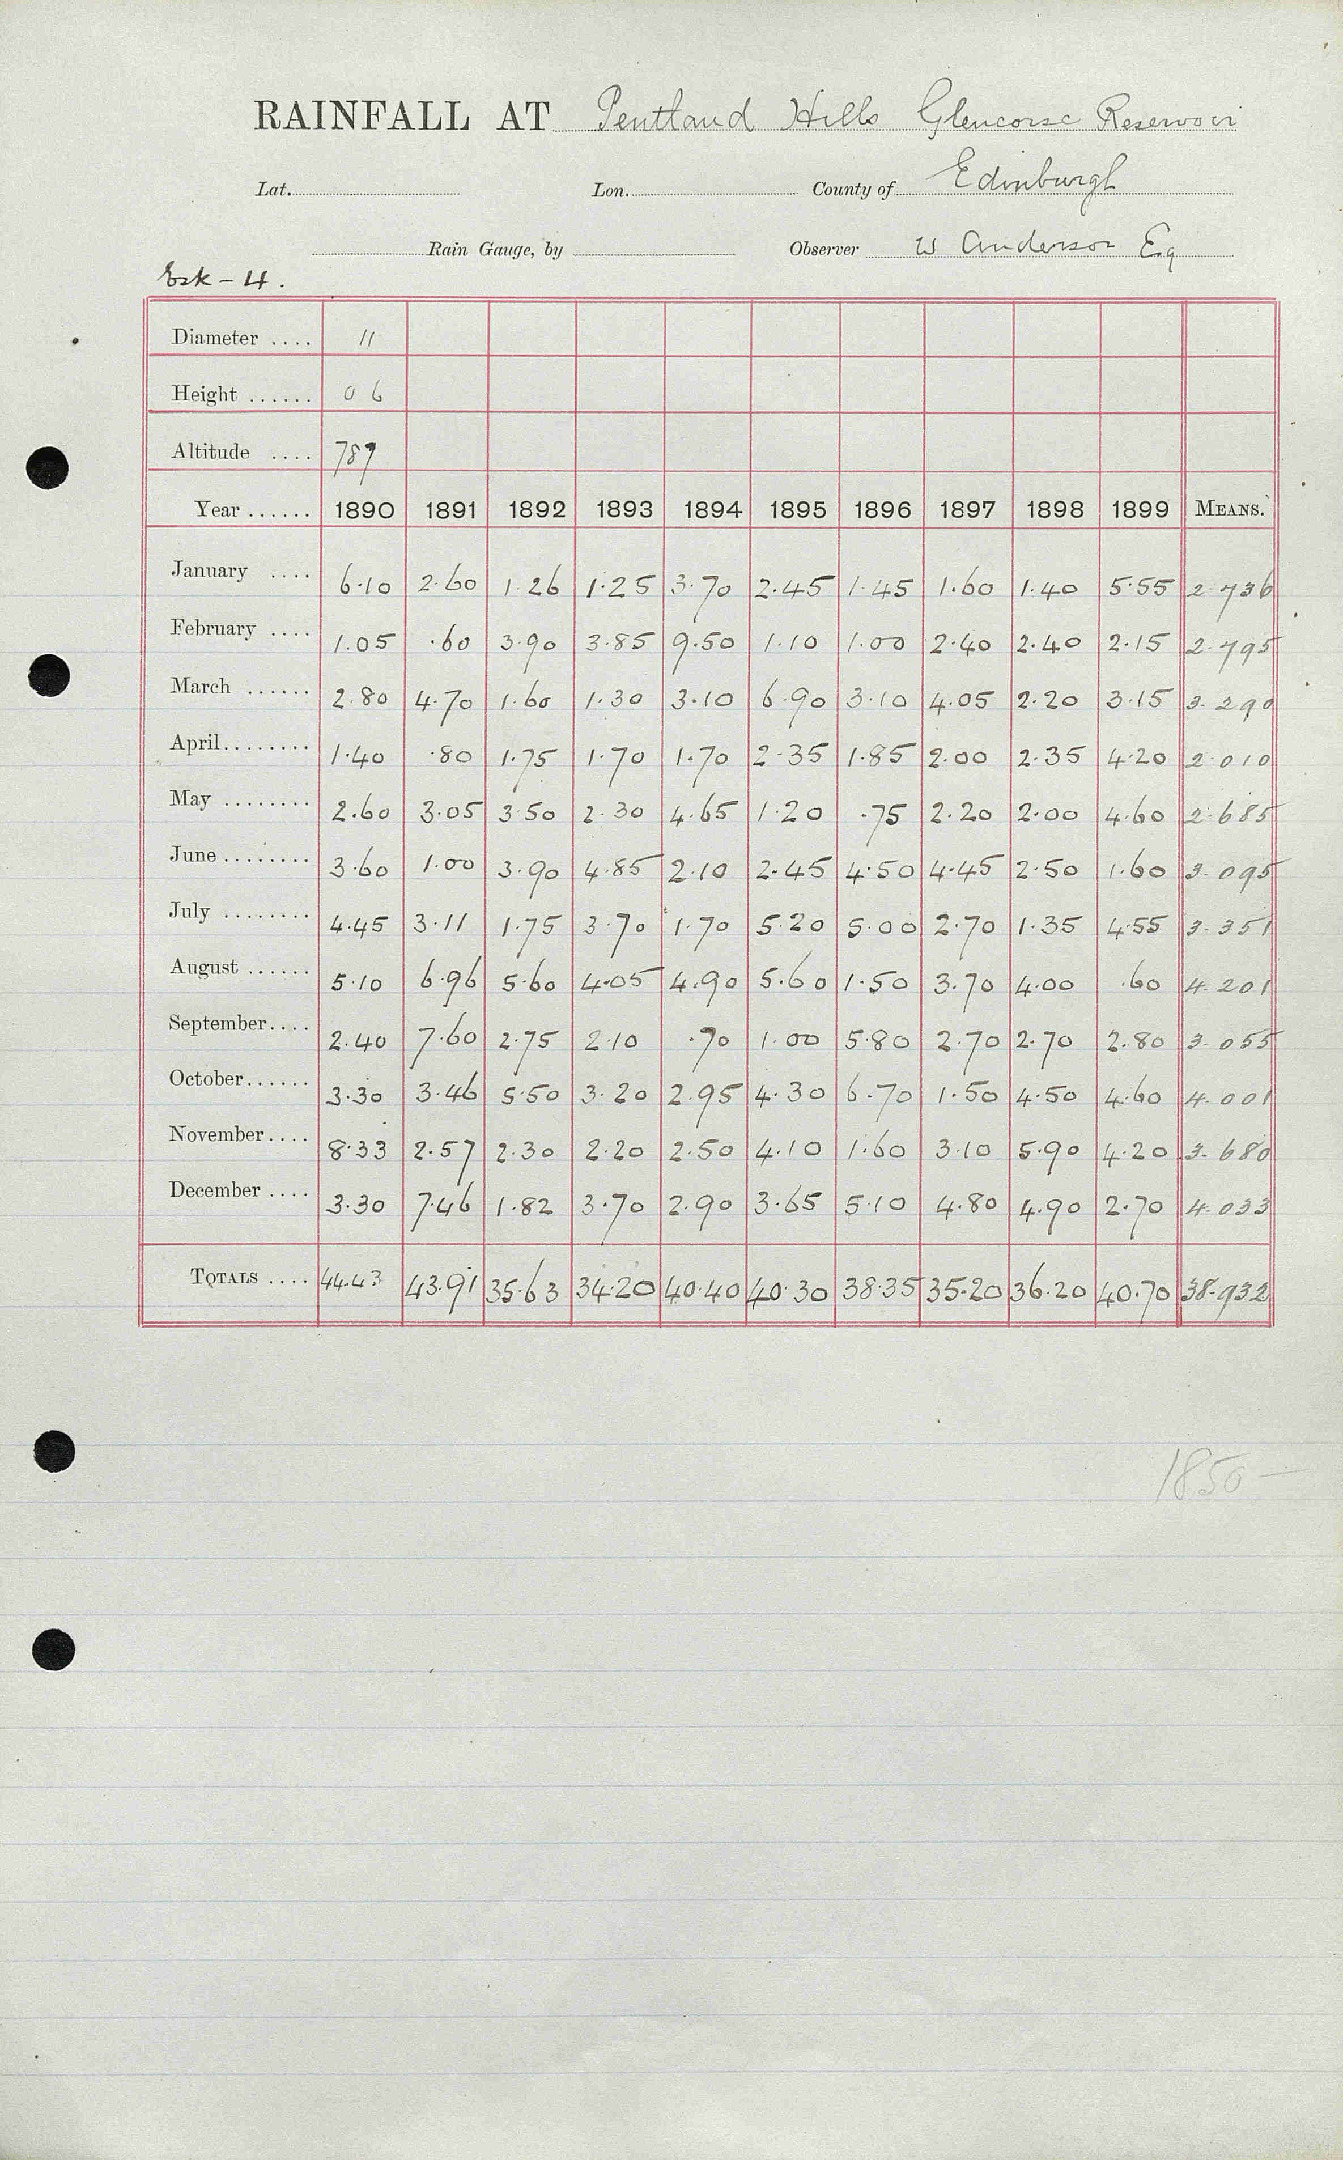 RAINFALL AT Pentland Hills Glencorse Reservoir
Lat. Lon. County of Edinburgh
Rain Gauge, by Observer W Anderson Esq
Esk - 4.
Diameter .... 11
Height ...... 0 6
Altitude .... 789
Year ...... 1890 1891 1892 1893 1894 1895 1896 1897 1898 1899 MEANS.
January .... 6.10 2.60 1.26 1.25 3.70 2.45 1.45 1.60 1.40 5.55 2.736
February .... 1.05 .60 3.90 3.85 9.50 1.10 1.00 2.40 2.40 2.15 2.795
March ...... 2.80 4.70 1.60 1.30 3.10 6.90 3.10 4.05 2.20 3.15 3.290
April........ 1.40 .80 1.75 1.70 1.70 2.35 1.85 2.00 2.35 4.20 2.010
May ........ 2.60 3.05 3.50 2.30 4.65 1.20 .75 2.20 2.00 4.60 2.685
June ........ 3.60 1.00 3.90 4.85 2.10 2.45 4.50 4.45 2.50 1.60 3.095
July ........ 4.45 3.11 1.75 3.70 1.70 5.20 5.00 2.70 1.35 4.55 3.351
August ...... 5.10 6.96 5.60 4.05 4.90 5.60 1.50 3.70 4.00 .60 4.201
September.... 2.40 7.60 2.75 2.10 .70 1.00 5.80 2.70 2.70 2.80 3.055
October...... 3.30 3.46 5.50 3.20 2.95 4.30 6.70 1.50 4.50 4.60 4.001
November.... 8.33 2.57 2.30 2.20 2.50 4.10 1.60 3.10 5.90 4.20 3.680
December .... 3.30 7.46 1.82 3.70 2.90 3.65 5.10 4.80 4.90 2.70 4.033
TOTALS .... 44.43 43.91 35.63 34.20 40.40 40.30 38.35 35.20 36.20 40.70 38.932
1850 —